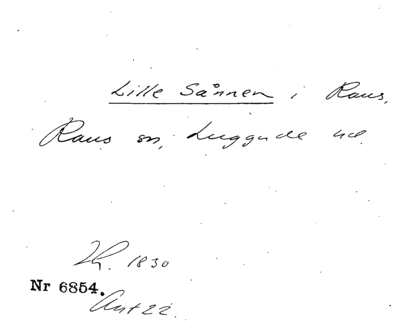 Lille Sånnen i Raus,
Raus sn, Luggude hd.
1830
Nr 6854.
Ant 22.